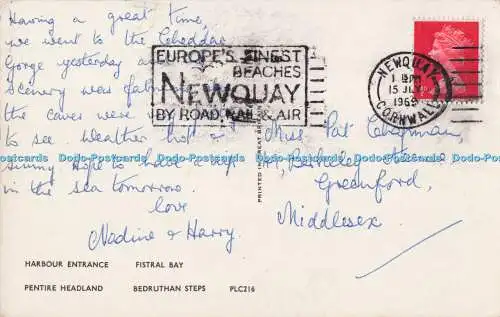 Having a great time,
we went to the Cheddar
Gorge yesterday
Scenery was
the caves were
to see weather hot
sunny hope to have a
in the sea tomorrow.
love
Nadine & Harry.
EUROPE'S FINEST
BEACHES
NEWQUAY
BY ROAD, RAIL & AIR
NEWQUAY
15 JLY
1969
CORNWALL
Miss Pat Chapman,
Greenford,
Middlesex
PRINTED IN GREAT
HARBOUR ENTRANCE FISTRAL BAY
PENTIRE HEADLAND BEDRUTHAN STEPS PLC216
Dodo-Postcards Dodo-Postcards Dodo-Postcards Dodo-Postcards Dodo-Postcards